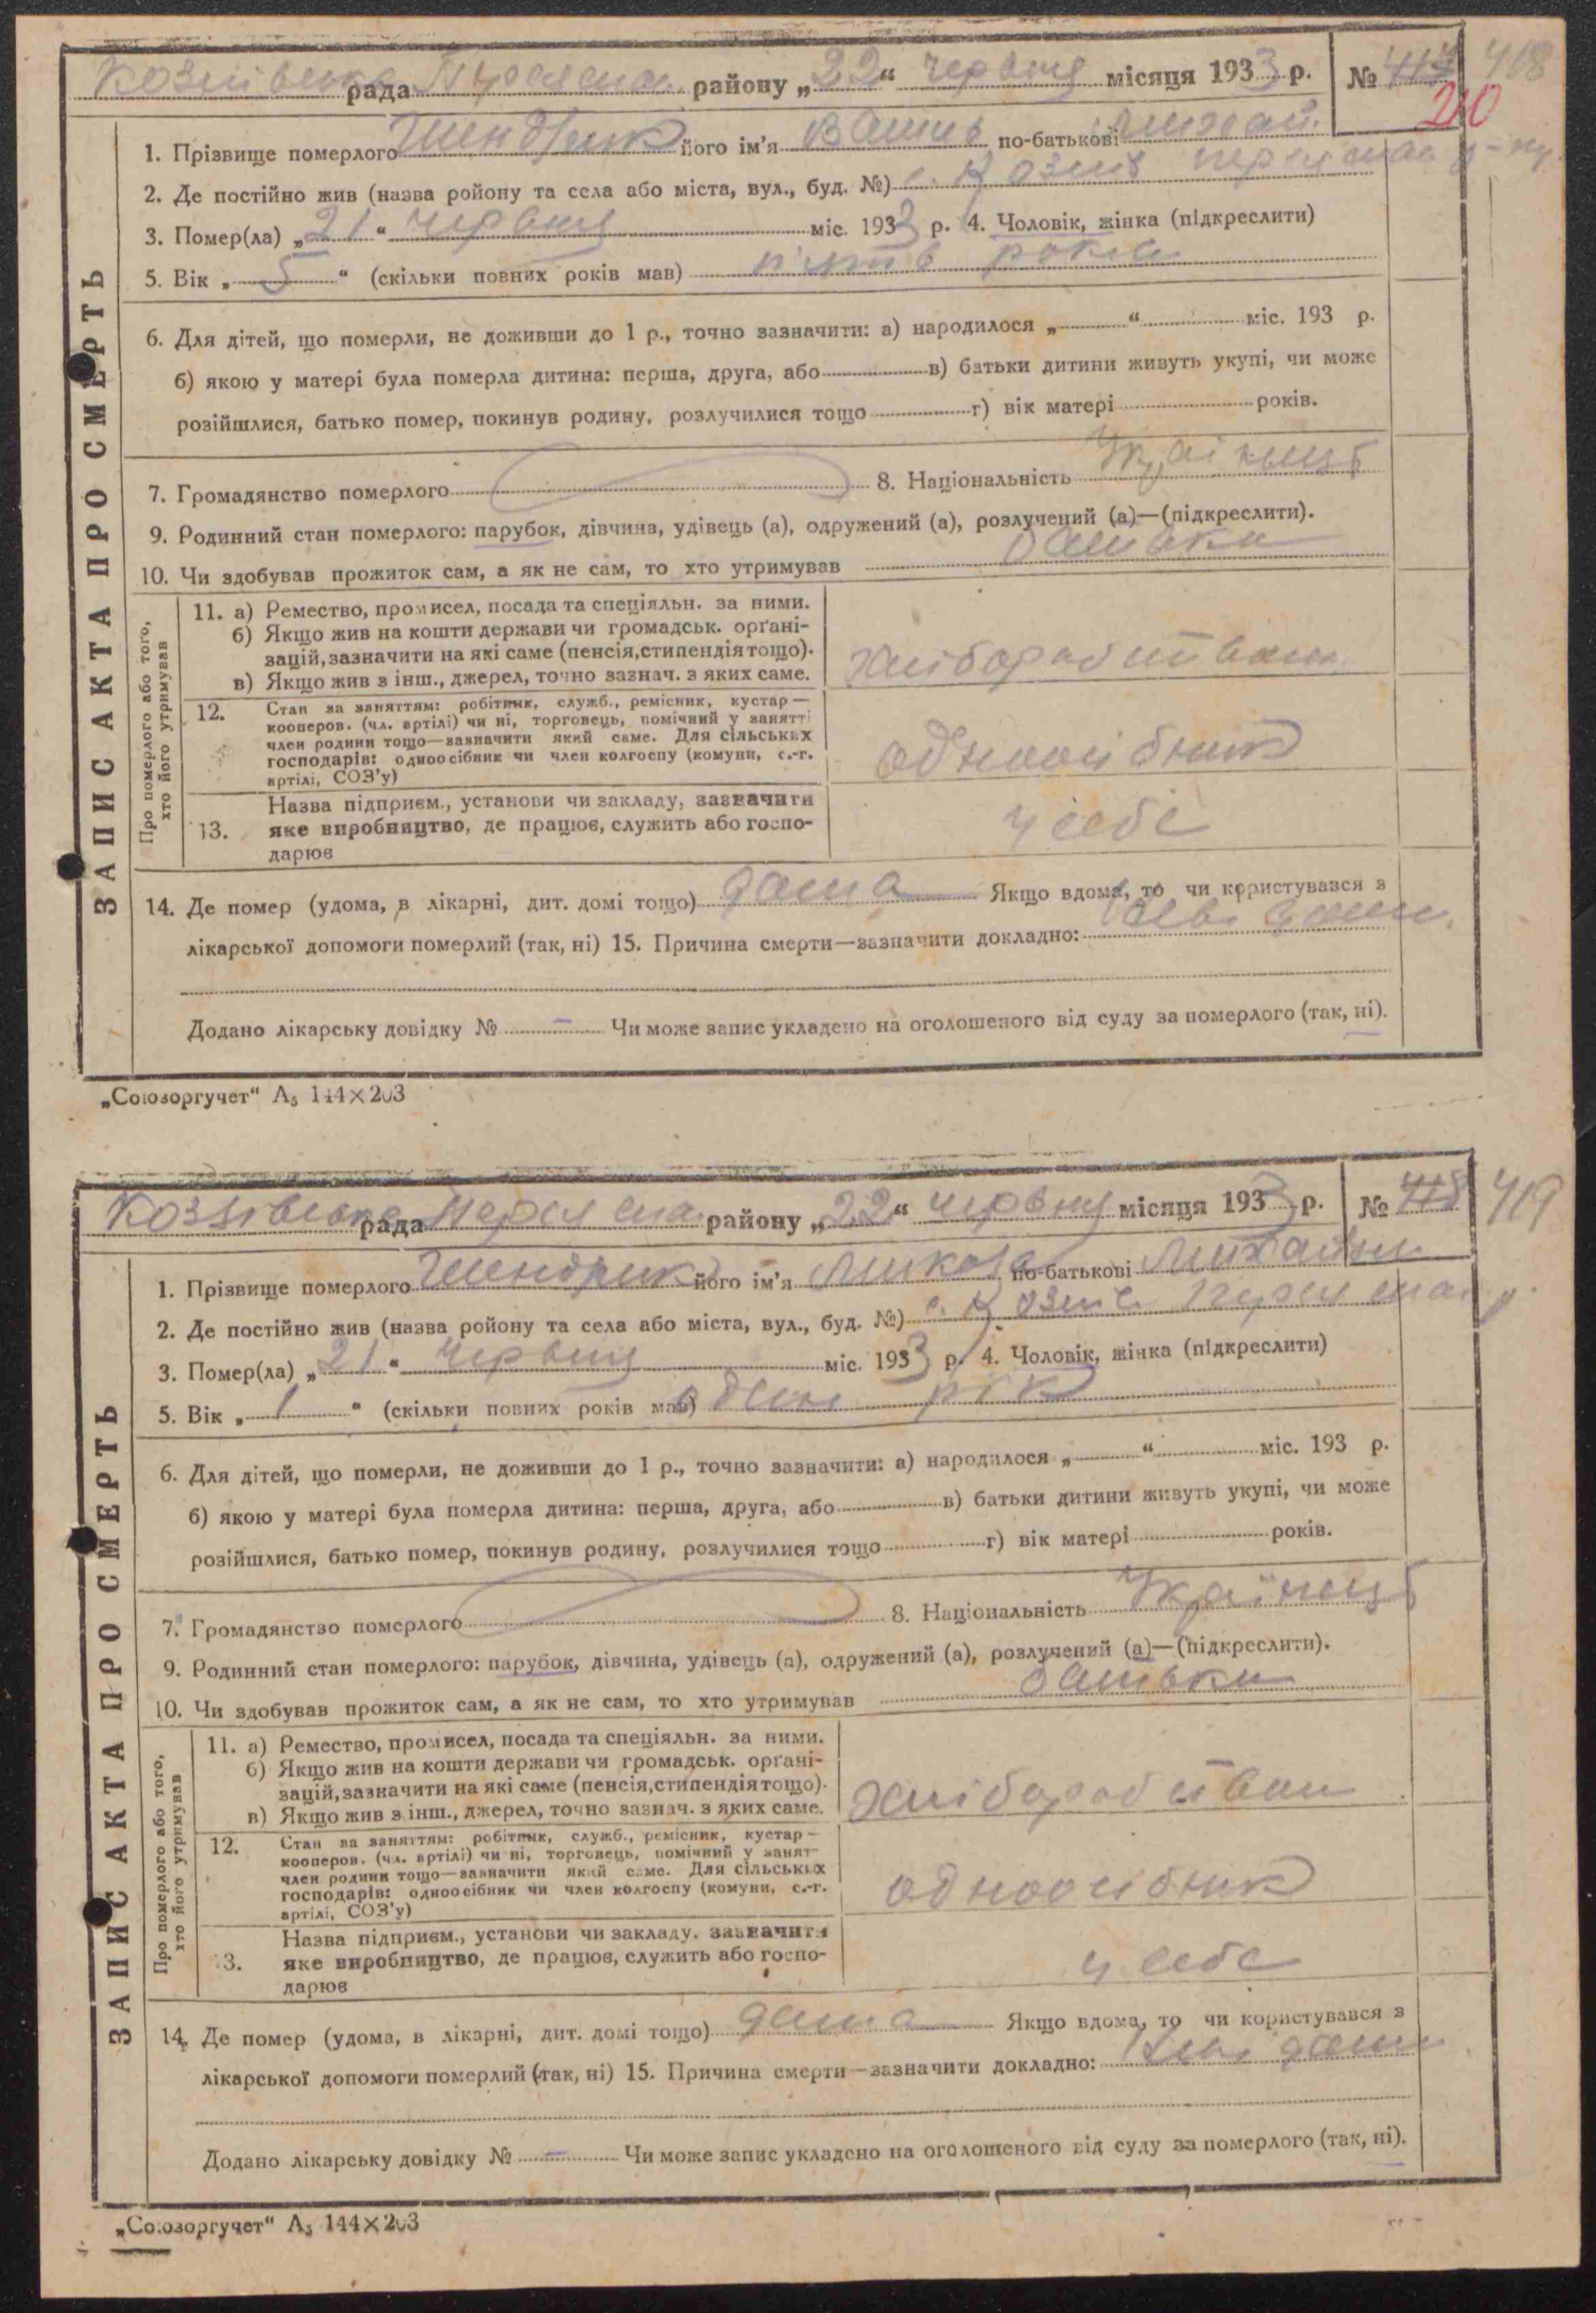 Козлівська рада Переяслав. району „22“ червня місяця 1933 р. № 417 418
210
1. Прізвище померлого Шендрик його ім'я по-батькові Михай.
2. Де постійно жив (назва ройону та села або міста, вул., буд. №) с. Козлів Переяслав р-ну
3. Помер(ла) „21“ червня міс. 1933 р. 4. Чоловік, жінка (підкреслити)
5. Вік „5“ (скільки повних років мав) п'ять років
6. Для дітей, що померли, не доживши до 1 р., точно зазначити: а) народилося „ “ міс. 193 р.
б) якою у матері була померла дитина: перша, друга, або в) батьки дитини живуть укупі, чи може
розійшлися, батько помер, покинув родину, розлучилися тощо г) вік матері років.
7. Громадянство померлого 8. Національність Українець
9. Родинний стан померлого: парубок, дівчина, удівець (а), одружений (а), розлучений (а)—(підкреслити).
10. Чи здобував прожиток сам, а як не сам, то хто утримував батьки
ЗАПИС АКТА ПРО СМЕРТЬ
Про померлого або того,
хто його утримував
11. а) Ремество, промисел, посада та спеціяльн. за ними.
б) Якщо жив на кошти держави чи громадськ. орґані-
зацій, зазначити на які саме (пенсія, стипендія тощо).
в) Якщо жив з інш., джерел, точно зазнач. з яких саме.
хліборобством
12. Стан за заняттям: робітник, служб., ремісник, кустар—
кооперов. (чл. артілі) чи ні, торговець, помічний у занятті
член родини тощо—зазначити який саме. Для сільських
господарів: одноосібник чи член колгоспу (комуни, с.-г.
артілі, СОЗ'у)
одноосібник
Назва підприєм., установи чи закладу, зазначити
13. яке виробництво, де працює, служить або госпо-
дарює
у себе
14. Де помер (удома, в лікарні, дит. домі тощо) дома Якщо вдома, то чи користувався з
лікарської допомоги померлий (так, ні) 15. Причина смерти—зазначити докладно:
Додано лікарську довідку № — Чи може запис укладено на оголошеного від суду за померлого (так, ні).
„Союзоргучет“ А5 144×203
Козлівська рада Переяслав. району „22“ червня місяця 1933 р. № 418 419
1. Прізвище померлого Шендрик його ім'я Микола по-батькові Михайлов
2. Де постійно жив (назва ройону та села або міста, вул., буд. №) с. Козлів Переяслав р.
3. Помер(ла) „21“ червня міс. 1933 р. 4. Чоловік, жінка (підкреслити)
5. Вік „1“ (скільки повних років мав) один рік
6. Для дітей, що померли, не доживши до 1 р., точно зазначити: а) народилося „ “ міс. 193 р.
б) якою у матері була померла дитина: перша, друга, або в) батьки дитини живуть укупі, чи може
розійшлися, батько помер, покинув родину, розлучилися тощо г) вік матері років.
7. Громадянство померлого 8. Національність Українець
9. Родинний стан померлого: парубок, дівчина, удівець (а), одружений (а), розлучений (а)—(підкреслити).
10. Чи здобував прожиток сам, а як не сам, то хто утримував батьки
ЗАПИС АКТА ПРО СМЕРТЬ
Про померлого або того,
хто його утримував
11. а) Ремество, промисел, посада та спеціяльн. за ними.
б) Якщо жив на кошти держави чи громадськ. орґані-
зацій, зазначити на які саме (пенсія, стипендія тощо).
в) Якщо жив з інш., джерел, точно зазнач. з яких саме.
хліборобством
12. Стан за заняттям: робітник, служб., ремісник, кустар—
кооперов. (чл. артілі) чи ні, торговець, помічний у занят-
член родини тощо—зазначити який саме. Для сільських
господарів: одноосібник чи член колгоспу (комуни, с.-г.
артілі, СОЗ'у)
одноосібник
Назва підприєм., установи чи закладу, зазначити
3. яке виробництво, де працює, служить або госпо-
дарює
у себе
14. Де помер (удома, в лікарні, дит. домі тощо) дома Якщо вдома, то чи користувався з
лікарської допомоги померлий (так, ні) 15. Причина смерти—зазначити докладно:
Додано лікарську довідку № — Чи може запис укладено на оголошеного від суду за померлого (так, ні).
„Союзоргучет“ А5 144×203